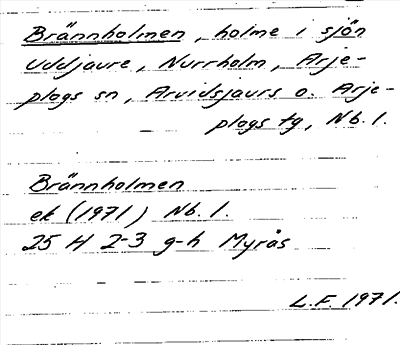 Brännholmen, holme i sjön
Uddjaure, Nurrholm, Arje-
plogs sn, Arvidsjaurs o. Arje-
plogs tg, Nb. l.
Brännholmen
ek (1971) Nb. l.
25 H 2-3 g-h Myrås
L.F. 1971.